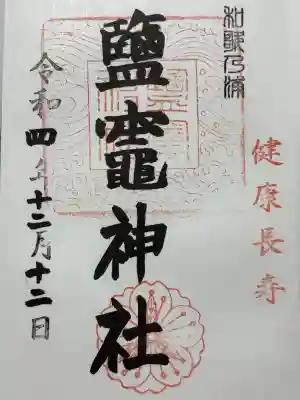 和歌乃浦
健康長寿
鹽竈神社
令和四年十二月十二日